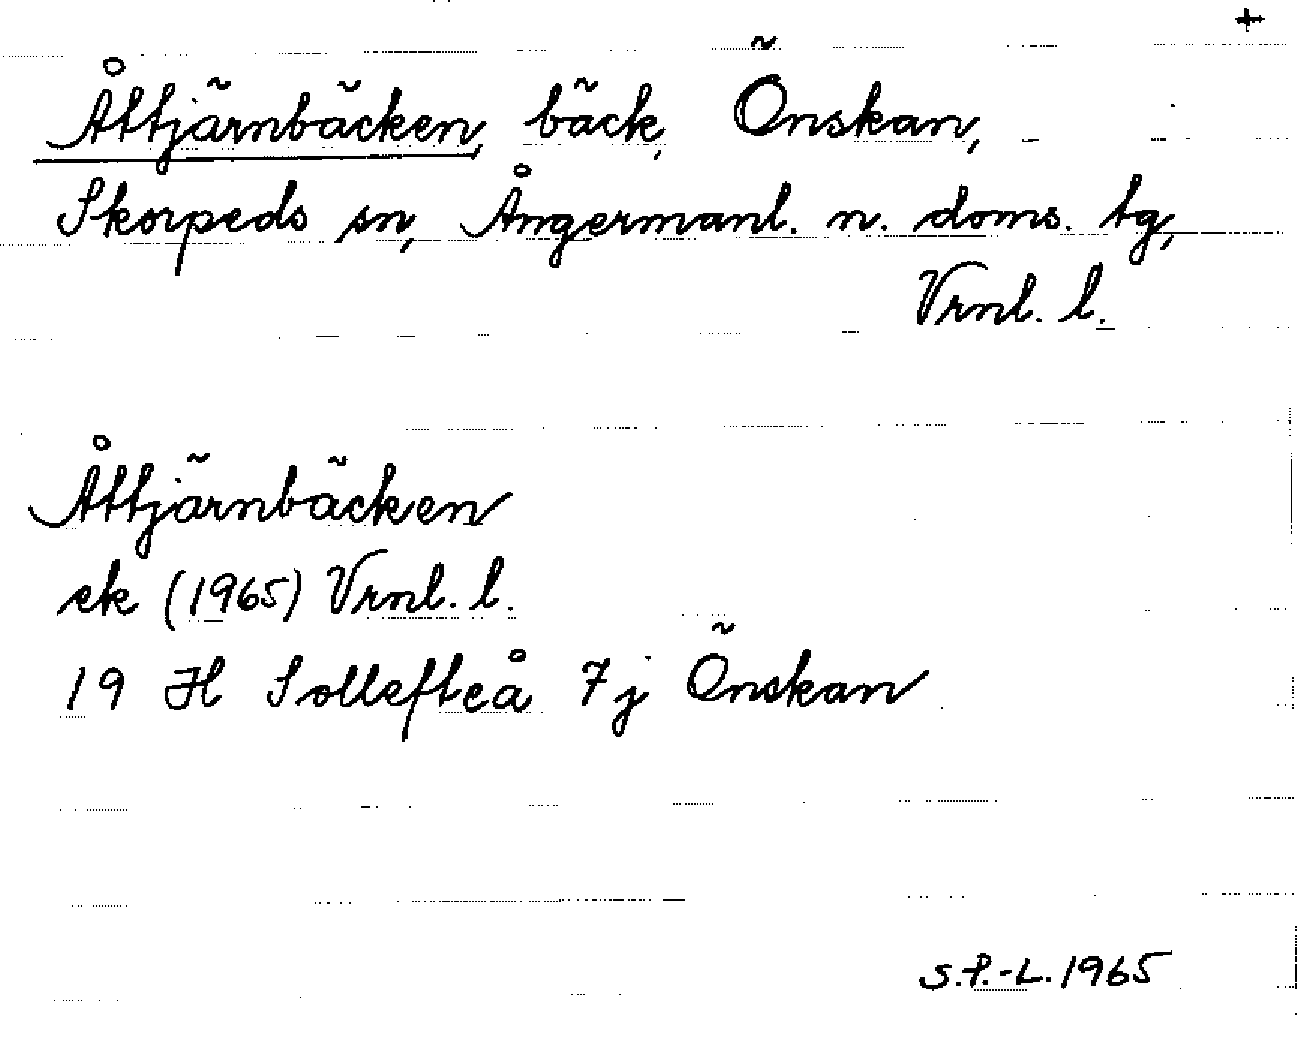 +
Åttjärnbäcken, bäck, Önskan,
Skorpeds sn, Ångermanl. n. doms. tg,
Vrnl. l.
Åttjärnbäcken
ek (1965) Vrnl. l.
19 H Sollefteå 7j Önskan
S.P.-L. 1965